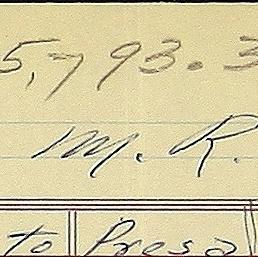 5,793.3
M. R.
to Presa